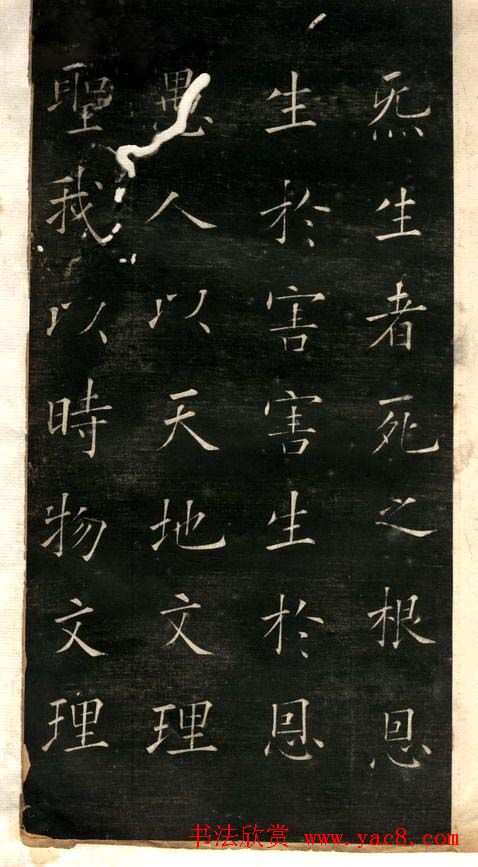 炁生者死之根恩
生於害害生於恩
愚人以天地文理
聖我以時物文理
书法欣赏 www.yac8.com